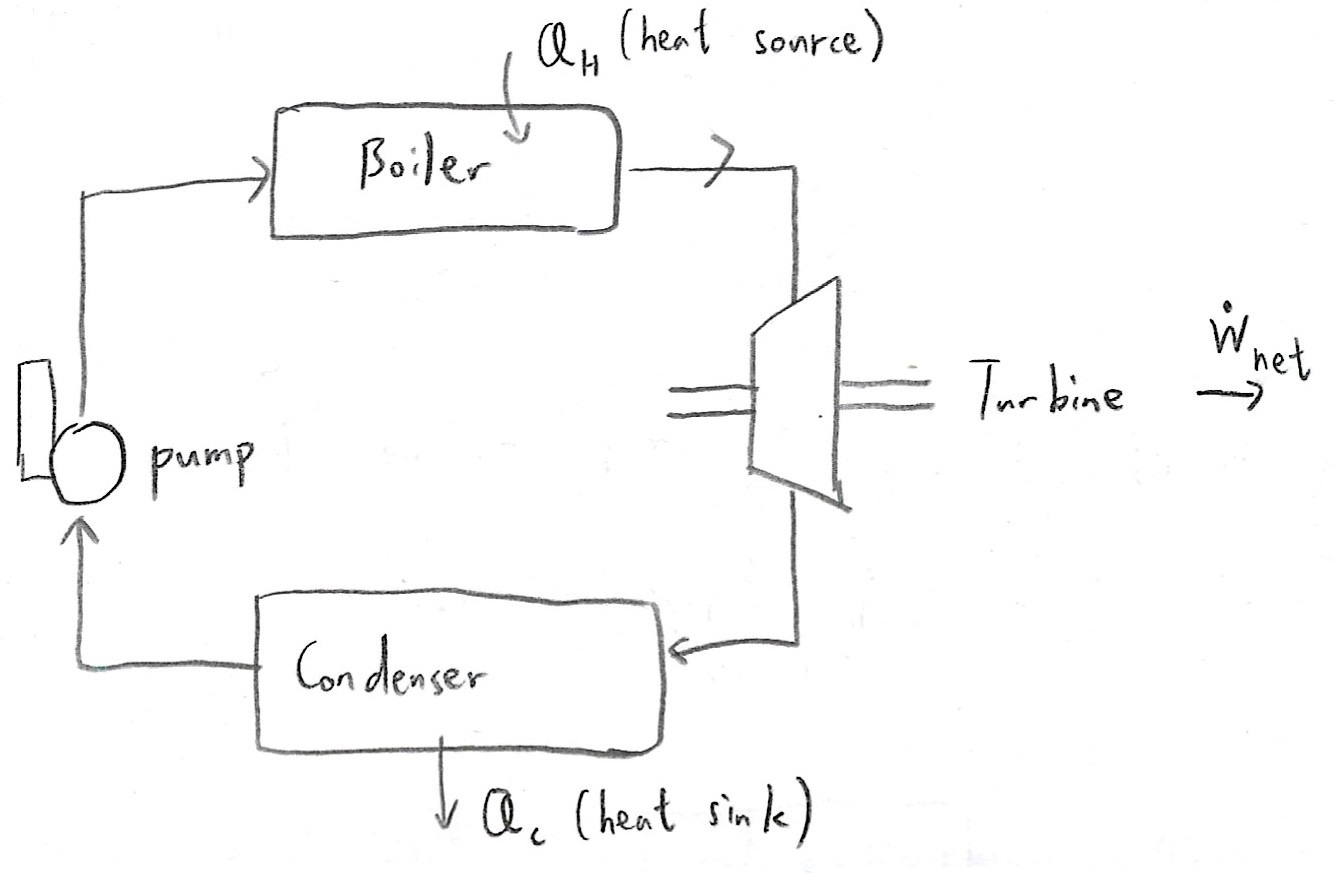 Q_H (heat source)
Boiler
Ẇ_net
Turbine
pump
Condenser
Q_c (heat sink)